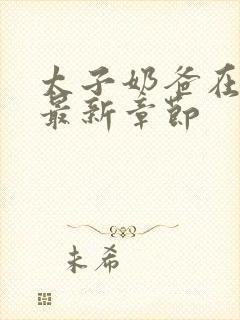 太子奶爸在
最新章節
未希